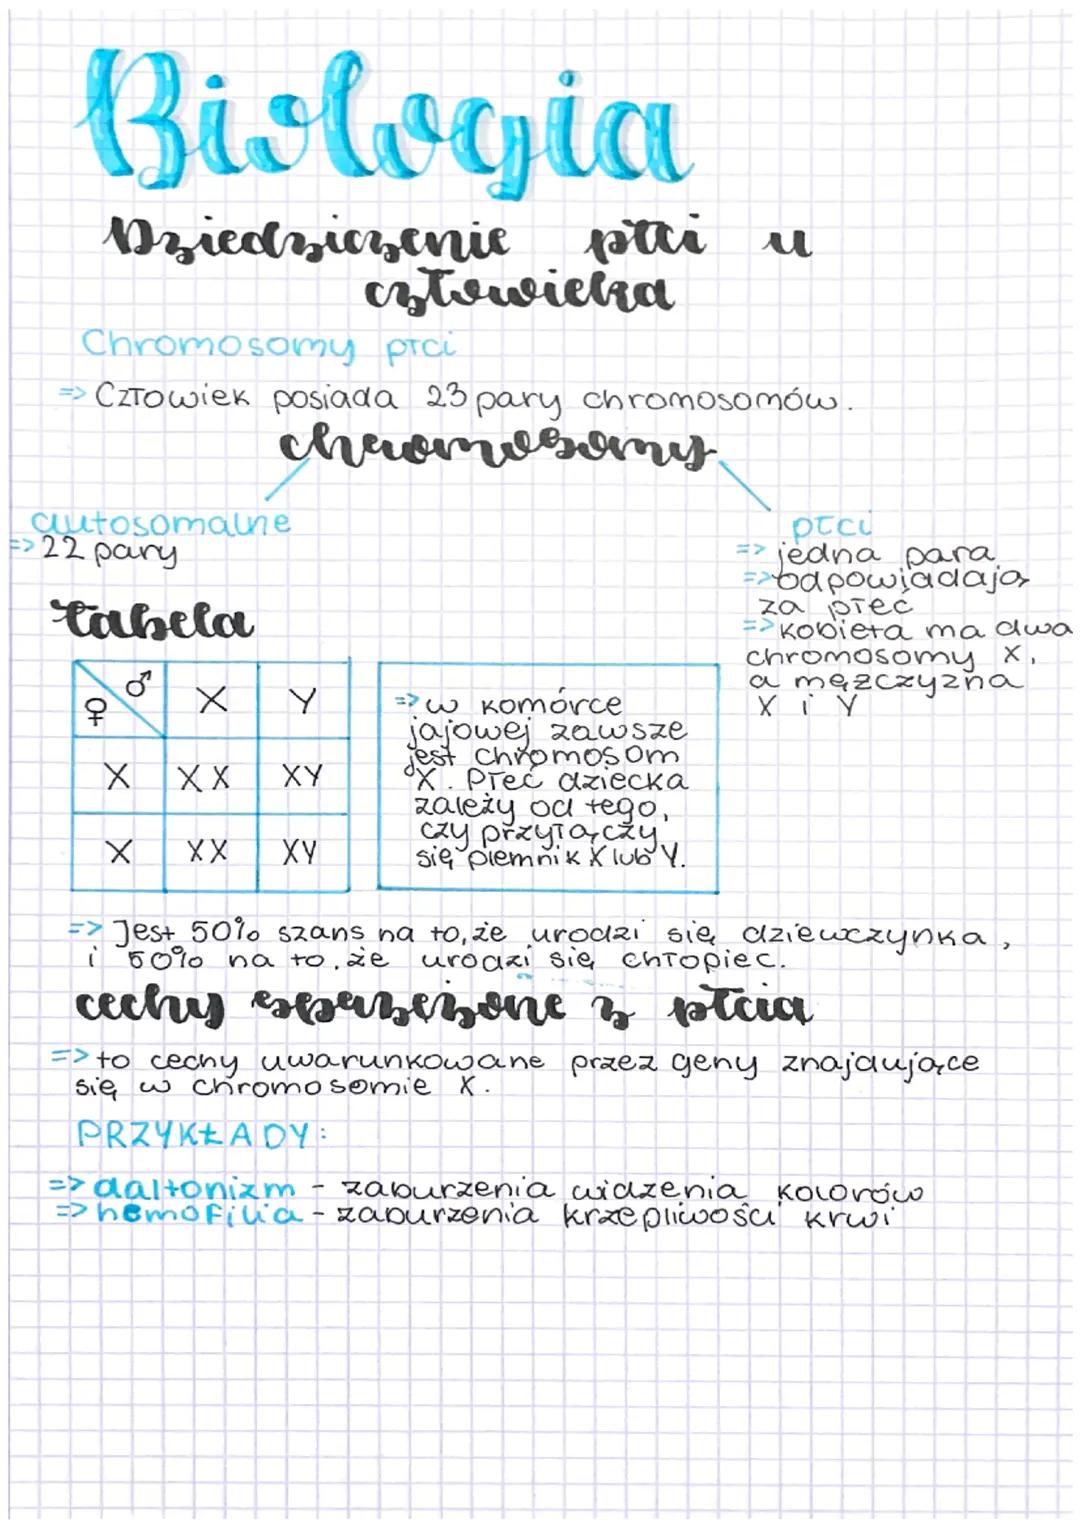 Biologia
Dziedziczenie płci u
człowieka
Chromosomy płci
=> Człowiek posiada 23 pary chromosomów.
chromosomy
autosomalne
=> 22 pary
płci
=> jedna para
=> odpowiadają
za płeć
=> kobieta ma dwa
chromosomy X,
a mężczyzna
X i Y
tabela
♀ ♂ X Y
X XX XY
X XX XY
=> w komórce
jajowej zawsze
jest chromosom
X. Płeć dziecka
zależy od tego,
czy przyłączy
się plemnik X lub Y.
=> Jest 50% szans na to, że urodzi się dziewczynka,
i 50% na to, że urodzi się chłopiec.
cechy sprzężone z płcią
=> to cechy uwarunkowane przez geny znajdujące
się w chromosomie X.
PRZYKŁADY:
=> daltonizm - zaburzenia widzenia kolorów
=> hemofilia - zaburzenia krzepliwości krwi